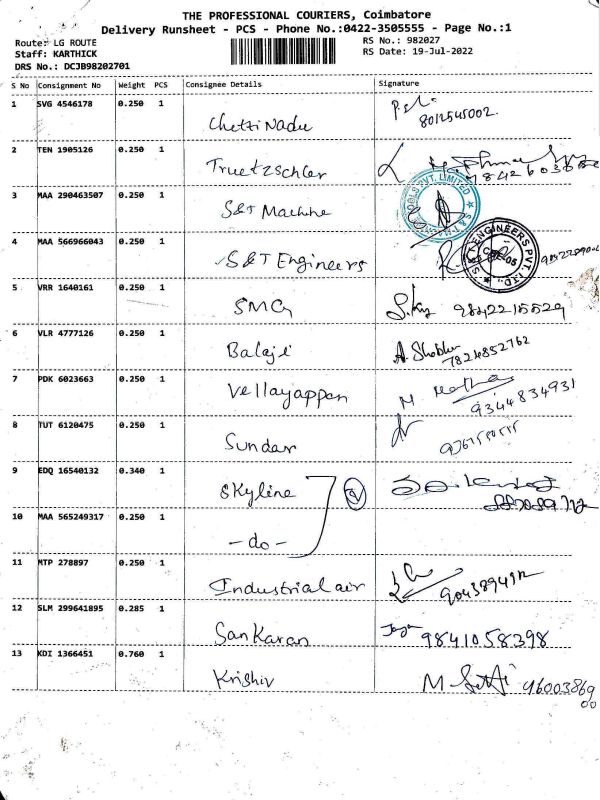 THE PROFESSIONAL COURIERS, Coimbatore
Delivery Runsheet - PCS - Phone No.:0422-3505555 - Page No.:1
Route: LG ROUTE
Staff: KARTHICK
DRS No.: DCJB98202701
RS No.: 982027
RS Date: 19-Jul-2022
S No Consignment No Weight PCS Consignee Details Signature
1 SVG 4546178 0.250 1 Chettinadu 8012545002.
2 TEN 1905126 0.250 1 Truetzschler
3 MAA 290463507 0.250 1 S&T Machine
4 MAA 566966043 0.250 1 S&T Engineers
5 VRR 1640161 0.250 1 SMG 9842215529
6 VLR 4777126 0.250 1 Balaji A. Shobha 7824852762
7 PDK 6023663 0.250 1 Vellayappan M. 9344834931
8 TUT 6120475 0.250 1 Sundar
9 EDQ 16540132 0.340 1 Skyline 2
10 MAA 565249317 0.250 1 - do -
11 MTP 278897 0.250 1 Industrial air
12 SLM 299641895 0.285 1 Sankaran 9841058398
13 KDI 1366451 0.760 1 Krishiv M 9600386900